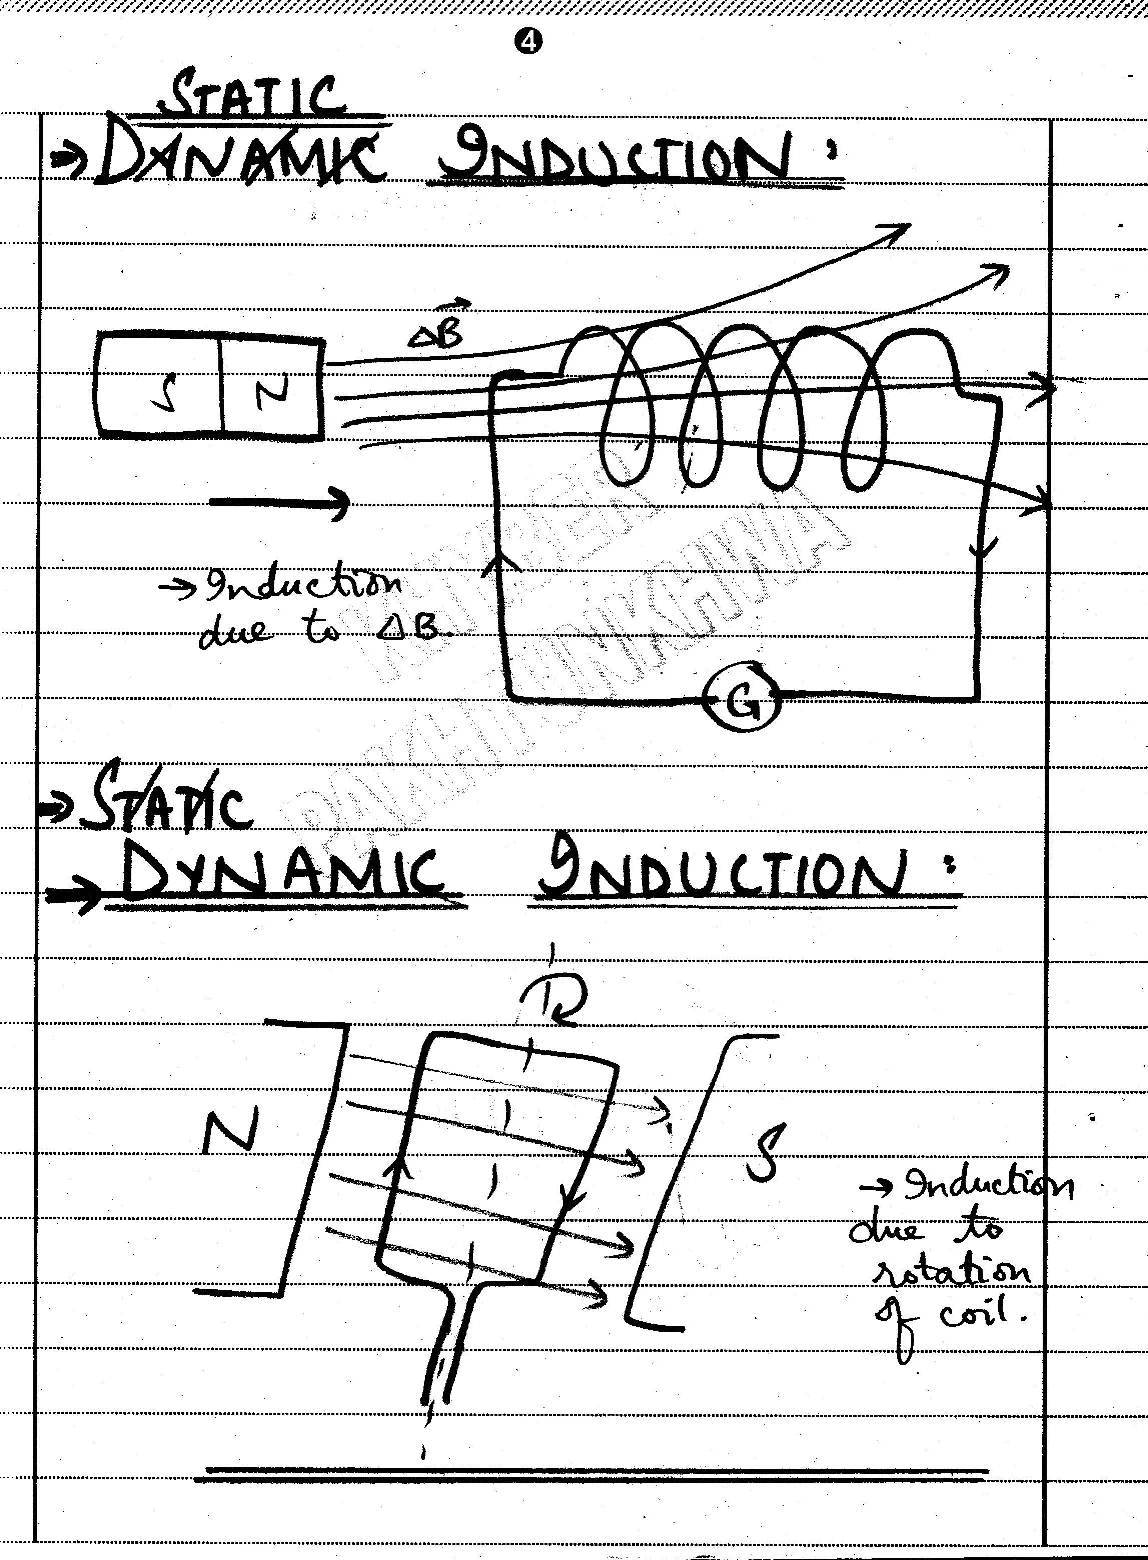 4
STATIC
→ DYNAMIC INDUCTION :
ΔB
S N
→ Induction
due to ΔB.
G
KHYBER
PAKHTUNKHWA
→ STATIC
→ DYNAMIC INDUCTION :
N
S
→ Induction
due to
rotation
of coil.